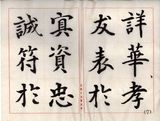 詳華孝
友表於
資忠
誠符於
(7)